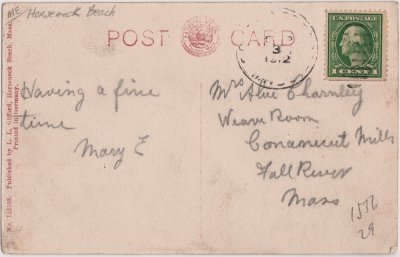 Mc Horseneck Beach
POST CARD
3
1912
U.S. POSTAGE
1 CENT 1
Having a fine
time
Mary E
Mrs Alice Charnley
Weave Room
Conanicut Mills
Fall River
Mass
1506
29
Published by L. L. Gifford, Horseneck Beach, Mass.
Printed in Germany.